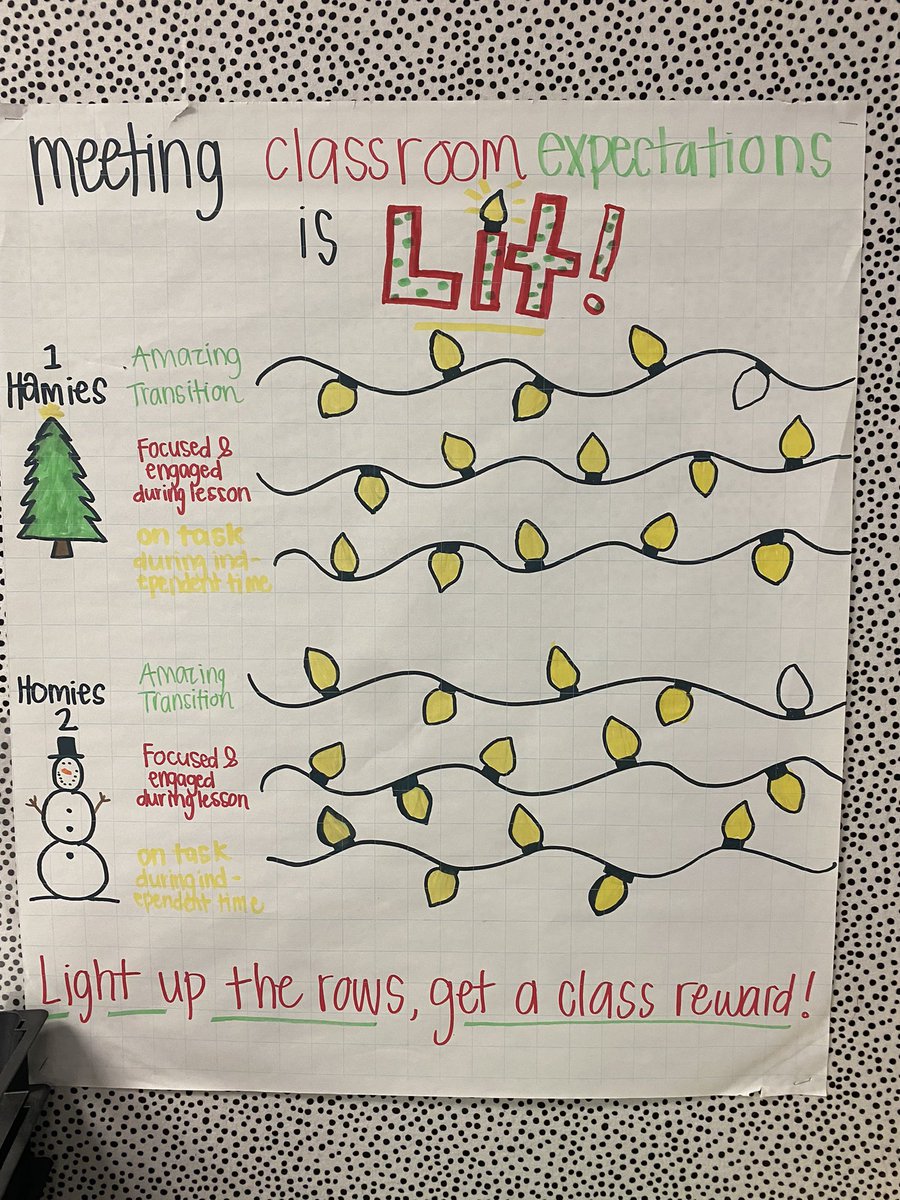 meeting classroom expectations
is Lit!
1
Hamies
Amazing
Transition
Focused &
engaged
during lesson
on task
during ind-
ependent time
Homies
2
Amazing
Transition
Focused &
engaged
during lesson
on task
during ind-
ependent time
Light up the rows, get a class reward!